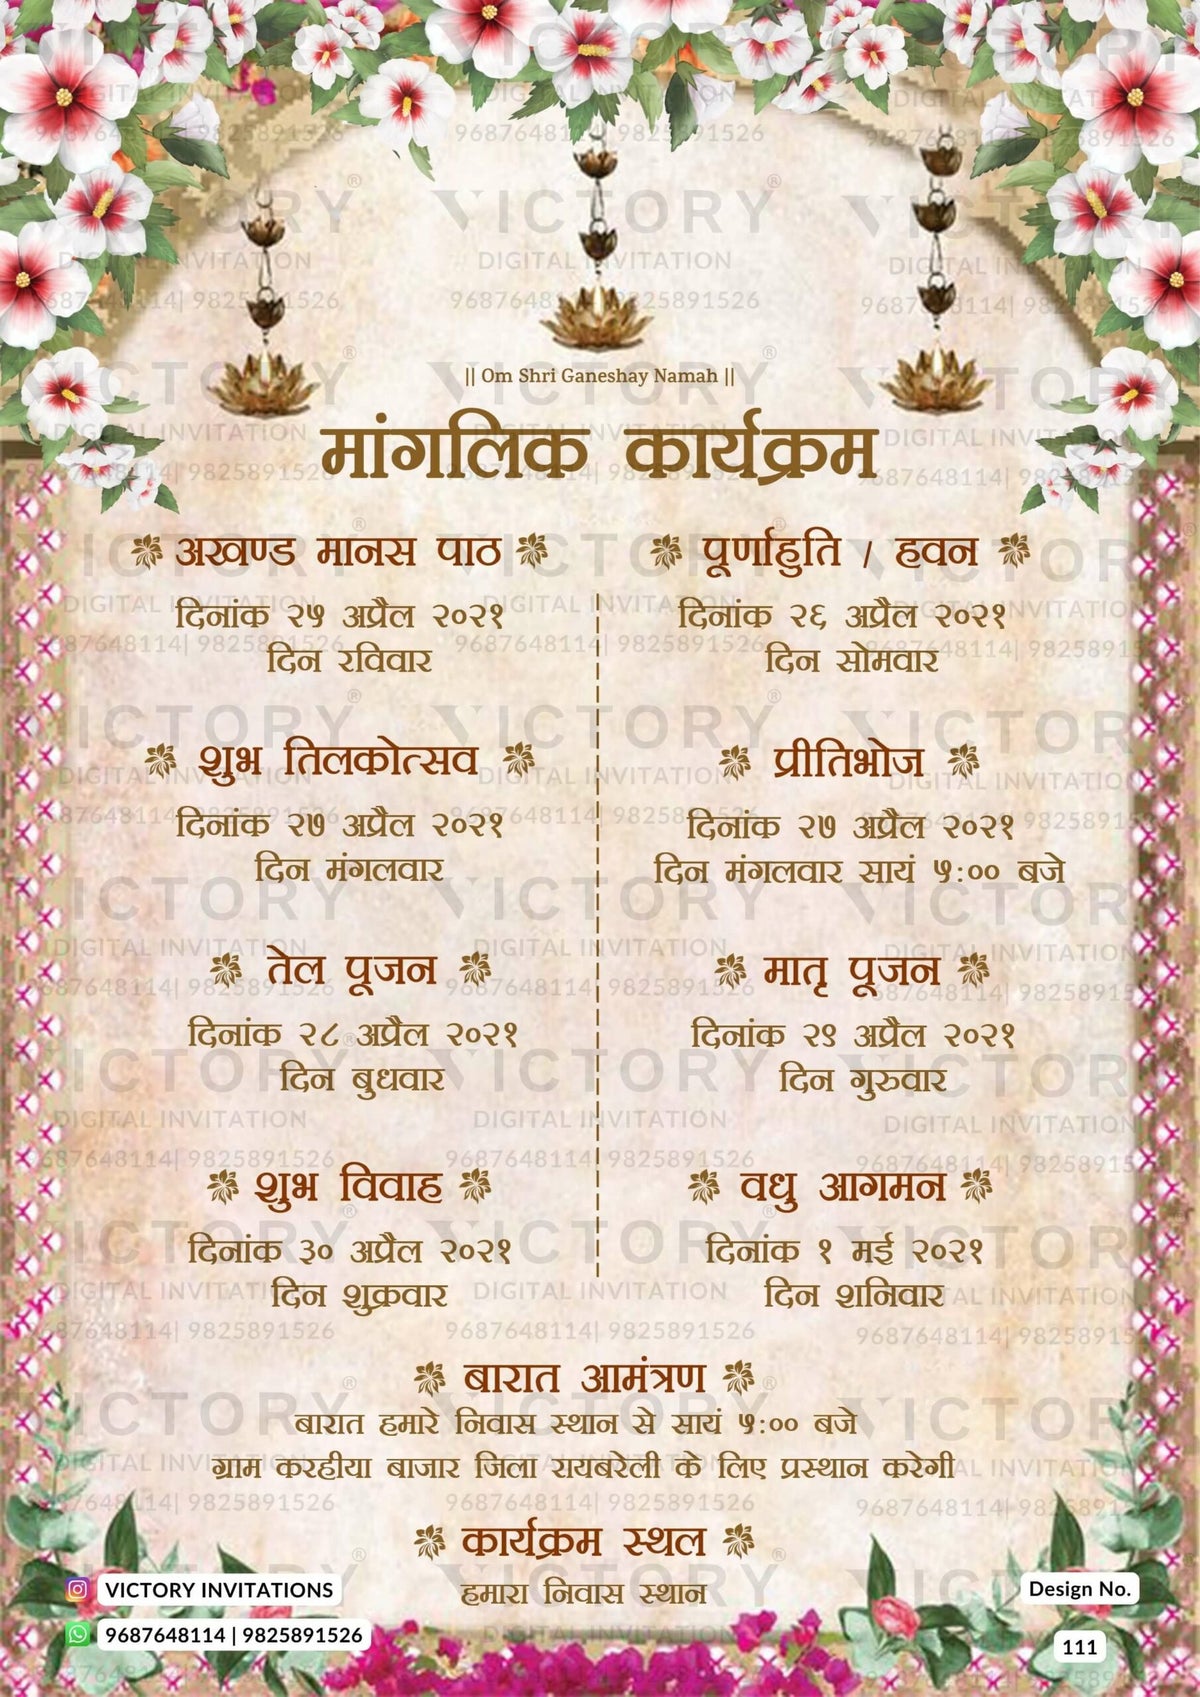 || Om Shri Ganeshay Namah ||
मांगलिक कार्यक्रम
अखण्ड मानस पाठ
दिनांक २५ अप्रैल २०२१
दिन रविवार
पूर्णाहुति / हवन
दिनांक २६ अप्रैल २०२१
दिन सोमवार
शुभ तिलकोत्सव
दिनांक २७ अप्रैल २०२१
दिन मंगलवार
प्रीतिभोज
दिनांक २७ अप्रैल २०२१
दिन मंगलवार सायं ५:०० बजे
तेल पूजन
दिनांक २८ अप्रैल २०२१
दिन बुधवार
मातृ पूजन
दिनांक २९ अप्रैल २०२१
दिन गुरुवार
शुभ विवाह
दिनांक ३० अप्रैल २०२१
दिन शुक्रवार
वधु आगमन
दिनांक १ मई २०२१
दिन शनिवार
बारात आमंत्रण
बारात हमारे निवास स्थान से सायं ५:०० बजे
ग्राम करहीया बाजार जिला रायबरेली के लिए प्रस्थान करेगी
कार्यक्रम स्थल
हमारा निवास स्थान
VICTORY INVITATIONS
9687648114 | 9825891526
Design No.
111
VICTORY®
DIGITAL INVITATION
9687648114| 9825891526